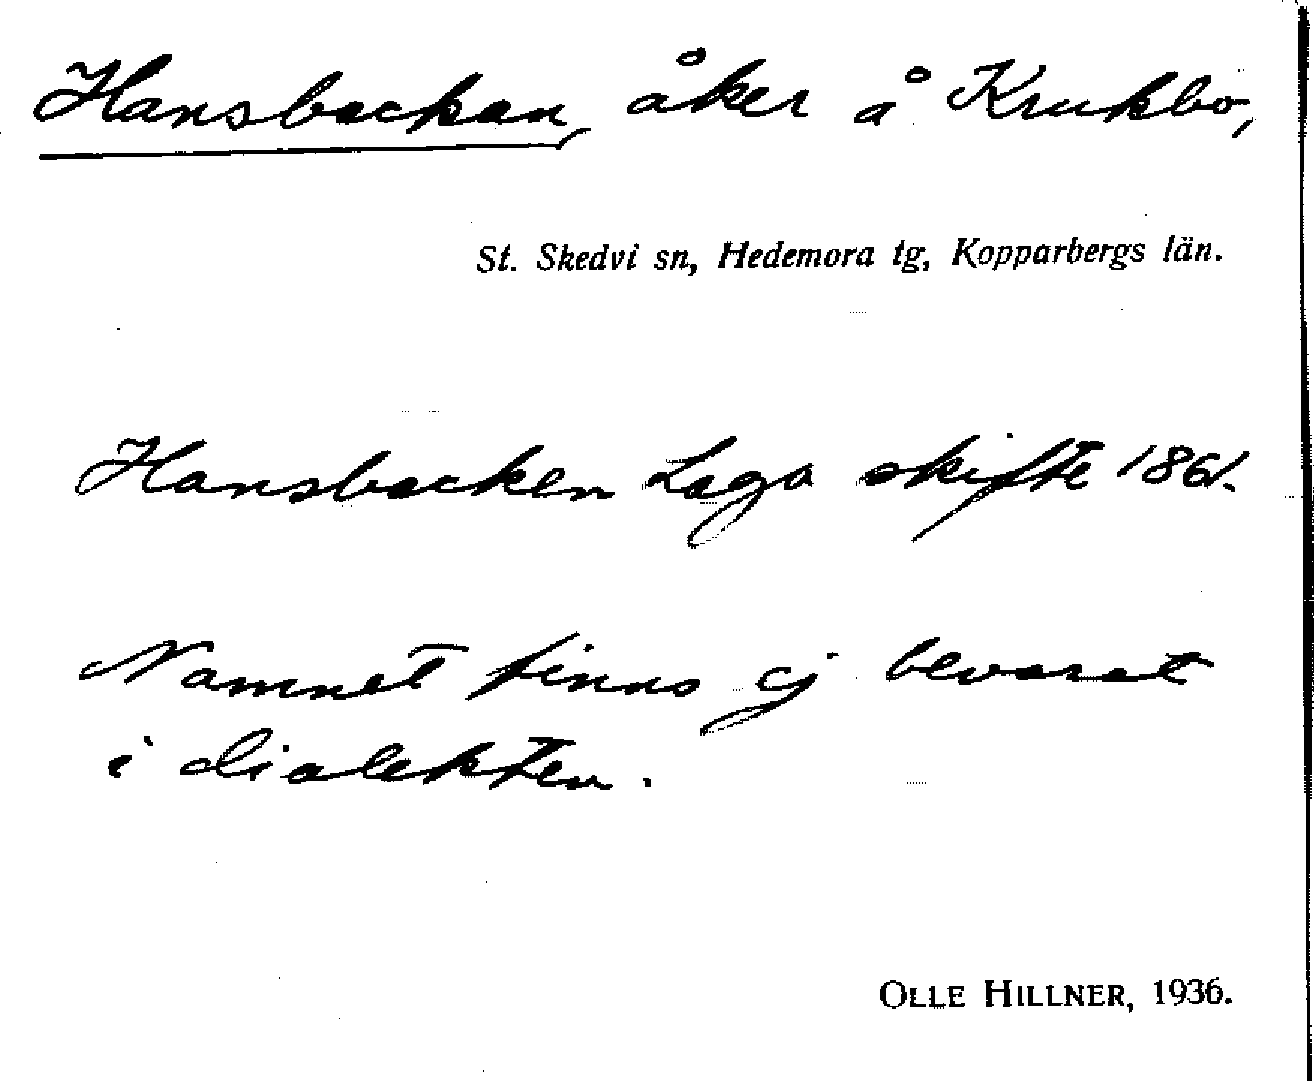 Hansbackan, åker å Krukbo,
St. Skedvi sn, Hedemora tg, Kopparbergs län.
Hansbacken Laga skifte 1861.
Namnet finns ej bevarat
i dialekten.
OLLE HILLNER, 1936.